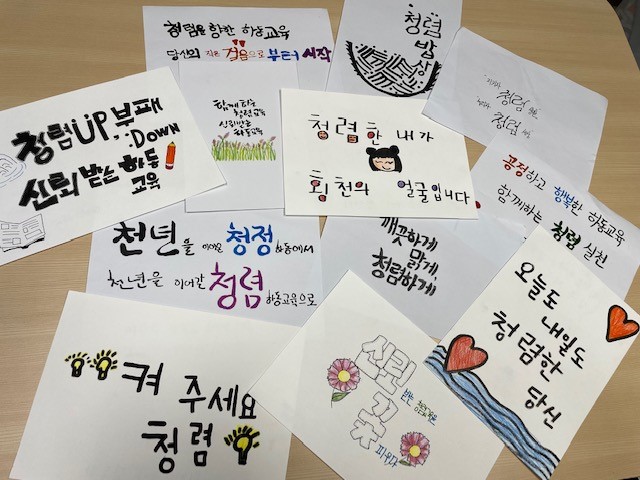 청렴을 향한 하동교육
당신의 작은 걸음으로 부터 시작
청렴
밥상
청렴
청렴
청렴UP 부패
DOWN
신뢰 받는 하동
교육
함께하는
청렴교육
신뢰받는
하동교육
청렴한 내가
회천의 얼굴입니다
공정하고 행복한 하동교육
함께하는 청렴 실천
천년을 이어온 청정하동에서
천년을 이어갈 청렴하동교육으로
깨끗하게
맑게
청렴하게
오늘도
내일도
청렴한
당신
켜 주세요
청렴
신뢰
받는
꽃
피우다